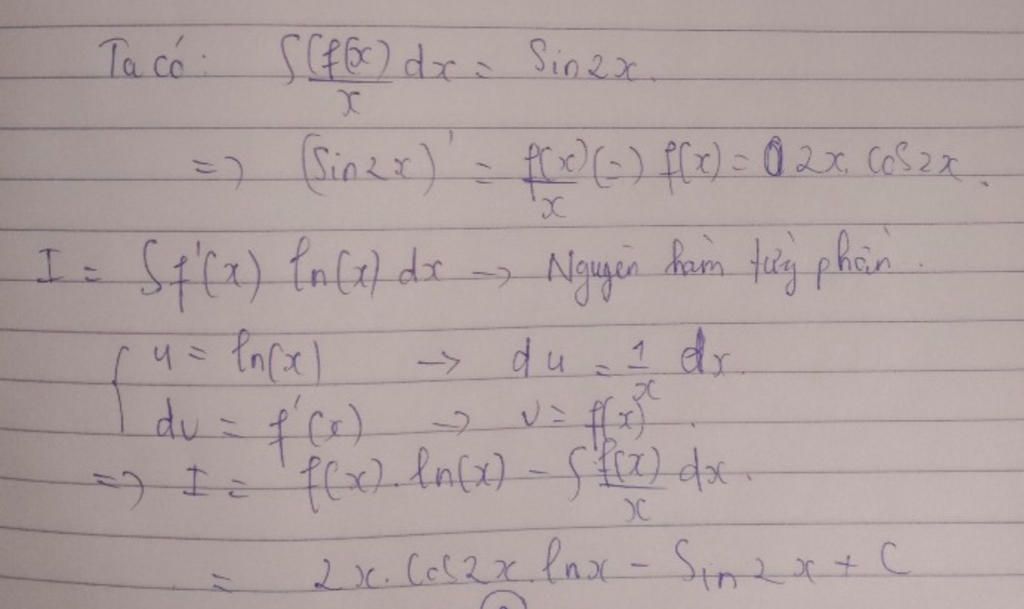 Ta có: ∫(f(x)/x dx = Sin2x.
=> (Sin2x)' = f(x)/x (=) f(x) = 2x. Cos2x.
I = ∫f'(x) ln(x) dx -> Nguyên hàm từng phần.
{ u = ln(x) -> du = 1/x dx.
dv = f'(x) -> v = f(x).
=> I = f(x). ln(x) - ∫f(x)/x dx.
= 2x. Cos2x. lnx - Sin2x + C